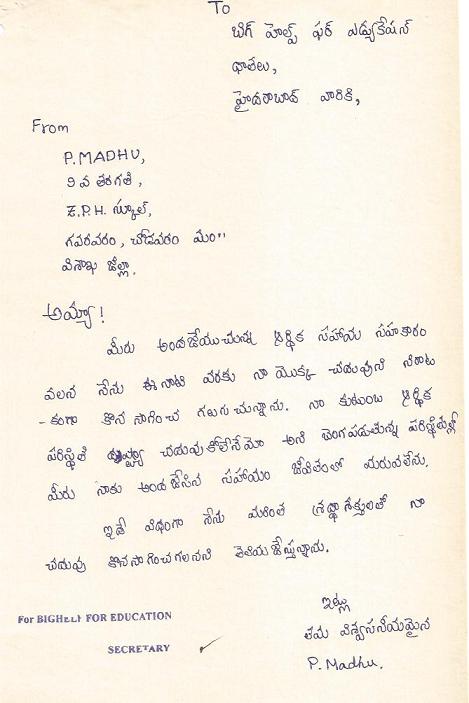 To
బిగ్ హెల్ప్ ఫర్ ఎడ్యుకేషన్
దాతలు,
హైదరాబాద్ వారికి,
From
P. MADHU,
9 వ తరగతి,
Z.P.H. స్కూల్,
గవరవరం, చోడవరం మం"
విశాఖ జిల్లా.
అమ్మా!
మీరు అందజేయుచున్న ఆర్థిక సహాయ సహకారం
వలన నేను ఈ నాటి వరకు నా యొక్క చదువుని నిరాట
-కంగా కొన సాగించ గలుగుచున్నాను. నా కుటుంబ ఆర్థిక
పరిస్థితి చదువుకోలేనేమో అని బెంగపడుతున్న పరిస్థితుల్లో
మీరు నాకు అందజేసిన సహాయం జీవితంలో మరువలేను.
ఇదే విధంగా నేను మరింత శ్రద్ధాసక్తులతో నా
చదువు కొనసాగించగలనని తెలియజేస్తున్నాను.
ఇట్లు
తమ విశ్వసనీయమైన
P. Madhu.
For BIGHELP FOR EDUCATION
SECRETARY